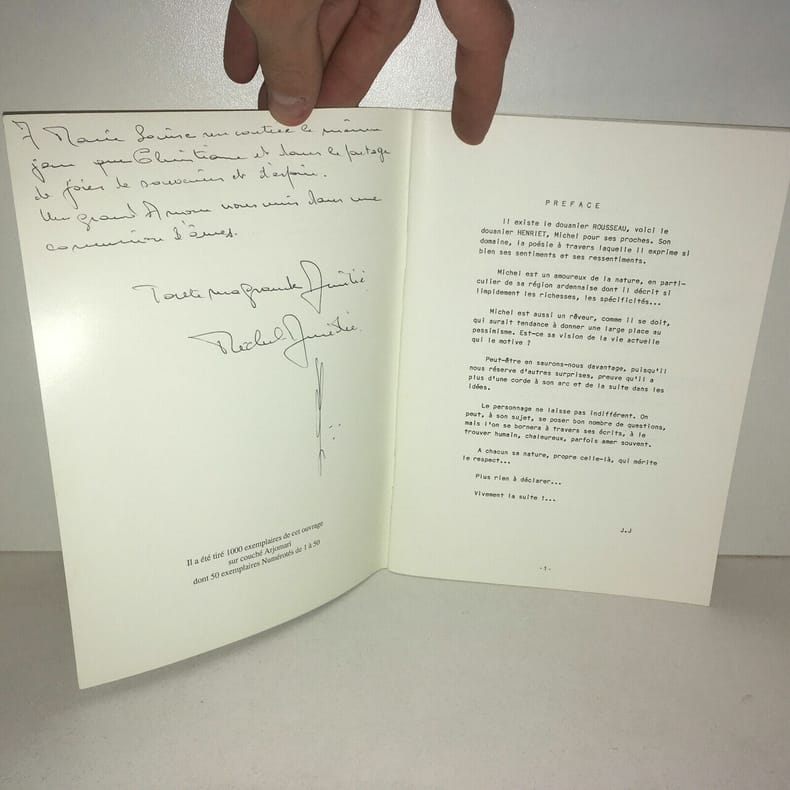 A Marie Louise rencontrée le même
jour que Christiane et dans le partage
de joies de souvenirs et d'espoir.
Un grand Amour nous unis dans une
communion d'âmes.
Toute ma grande Amitié
Michel
Il a été tiré 1000 exemplaires de cet ouvrage
sur couché Arjomari
dont 50 exemplaires Numérotés de 1 à 50
PREFACE
Il existe le douanier ROUSSEAU, voici le
douanier HENRIET, Michel pour ses proches. Son
domaine, la poésie à travers laquelle il exprime si
bien ses sentiments et ses ressentiments.
Michel est un amoureux de la nature, en parti-
culier de sa région ardennaise dont il décrit si
limpidement les richesses, les spécificités...
Michel est aussi un rêveur, comme il se doit,
qui aurait tendance à donner une large place au
pessimisme. Est-ce sa vision de la vie actuelle
qui le motive ?
Peut-être en saurons-nous davantage, puisqu'il
nous réserve d'autres surprises, preuve qu'il a
plus d'une corde à son arc et de la suite dans les
idées.
Le personnage ne laisse pas indifférent. On
peut, à son sujet, se poser bon nombre de questions,
mais l'on se bornera à travers ses écrits, à le
trouver humain, chaleureux, parfois amer souvent.
A chacun sa nature, propre celle-là, qui mérite
le respect...
Plus rien à déclarer...
Vivement la suite !...
J.J
-1-